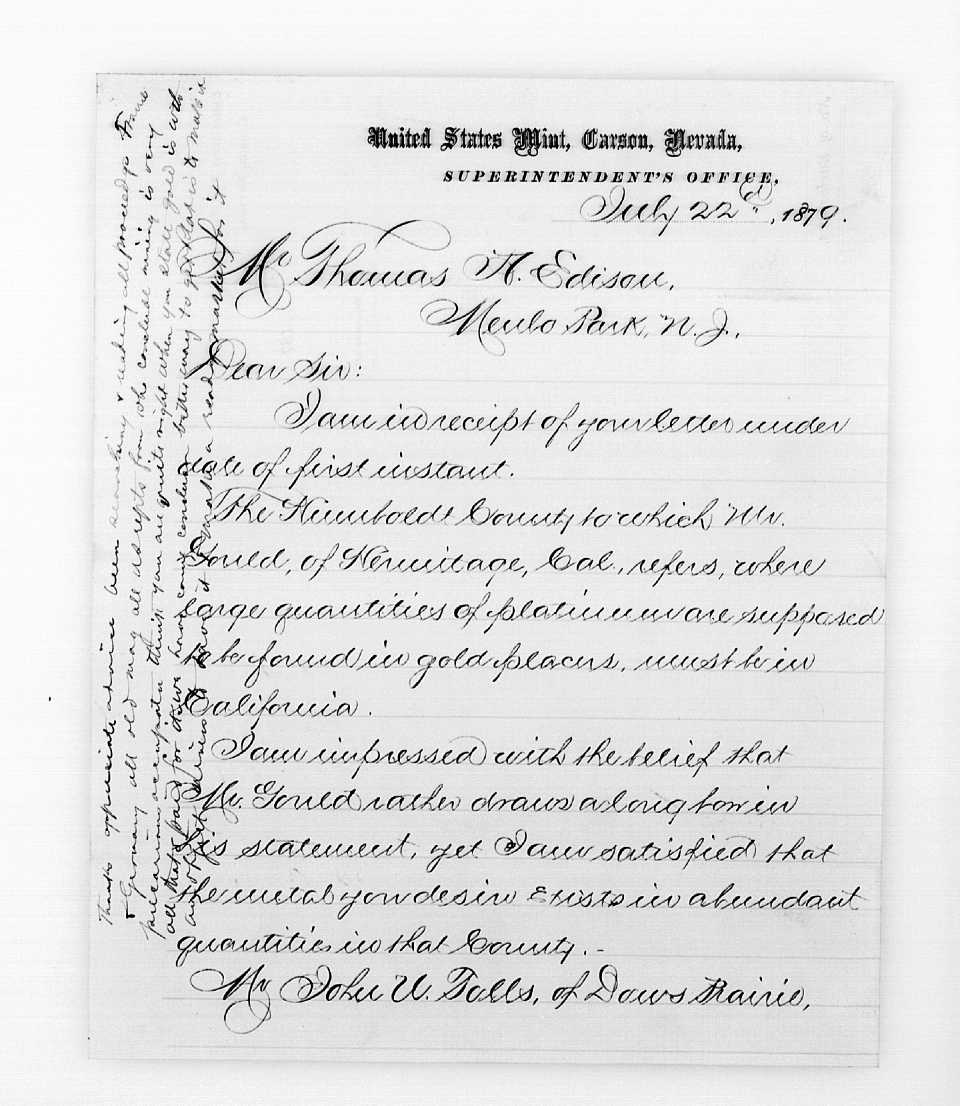 United States Mint, Carson, Nevada,
SUPERINTENDENT'S OFFICE,
July 22d, 1879.
Mr Thomas A. Edison,
Menlo Park, N. J.,
Dear Sir:
I am in receipt of your letter under
date of first instant.
The Humboldt County to which Mr.
Gould, of Hermitage, Cal., refers, where
large quantities of platinum are supposed
to be found in gold placers, must be in
California.
I am impressed with the belief that
Mr. Gould rather draws a long bow in
his statement, yet I am satisfied that
the metal you desire exists in abundant
quantities in that County.-
Mr John U. Tolls, of Dows Prairie,
Thanks appreciate advice been searching &
all old may all as repts from who conclude mining is very
precarious think you are quite right when you state gold is with
all that is paid for it we have any
a ready market for it